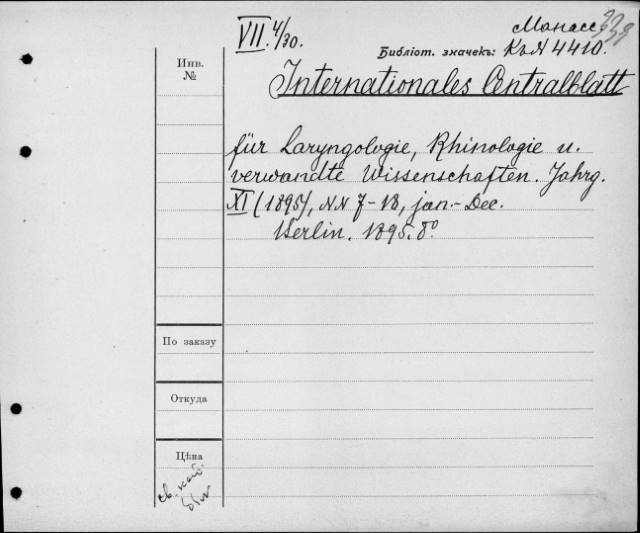 VII 4/30.
Манасс
Библіот. значекъ: КъN 4410.
Инв.
№
Internationales Centralblatt
für Laryngologie, Rhinologie u.
verwandte Wissenschaften. Jahrg.
XI (1895), NN 7-18, jan.-Dec.
Berlin. 1895. 8°
По заказу
Откуда
Цѣна
св.